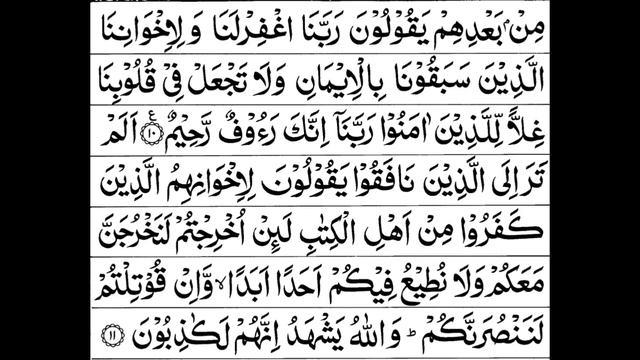 مِنْۢ بَعْدِهِمْ يَقُوْلُوْنَ رَبَّنَا اغْفِرْ لَنَا وَ لِاِخْوَانِنَا
الَّذِيْنَ سَبَقُوْنَا بِالْاِيْمَانِ وَلَا تَجْعَلْ فِيْ قُلُوْبِنَا
غِلًّا لِّلَّذِيْنَ اٰمَنُوْا رَبَّنَاۤ اِنَّكَ رَءُوْفٌ رَّحِيْمٌ ۧ۝۱۰ اَلَمْ
تَرَ اِلَى الَّذِيْنَ نَافَقُوْا يَقُوْلُوْنَ لِاِخْوَانِهِمُ الَّذِيْنَ
كَفَرُوْا مِنْ اَهْلِ الْكِتٰبِ لَىِٕنْ اُخْرِجْتُمْ لَنَخْرُجَنَّ
مَعَكُمْ وَلَا نُطِيْعُ فِيْكُمْ اَحَدًا اَبَدًا ۙ وَّاِنْ قُوْتِلْتُمْ
لَنَنْصُرَنَّكُمْ ؕ وَاللّٰهُ يَشْهَدُ اِنَّهُمْ لَكٰذِبُوْنَ ۝۱۱